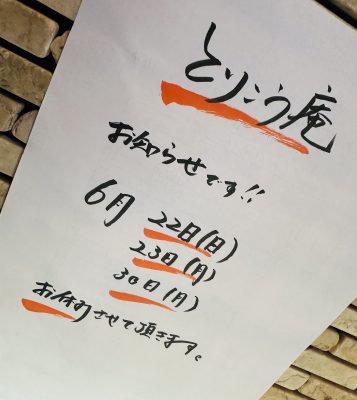 とりこう庵
お知らせです!!
6月 22日(日)
23日(月)
30日(月)
お休みさせて頂きます。